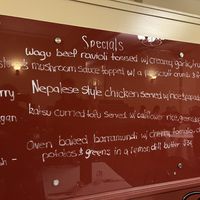 Specials
Wagu beef ravioli tossed w/ creamy garlic,
& mushroom sauce topped w/ a crumb &
rry - Nepalese style chicken served w/ rice &
gan - katsu curried tofu served w/ cauliflower rice,
Oven baked barramundi w/ cherry tomato
sh - potatoes & greens in a lemon dill butter $34